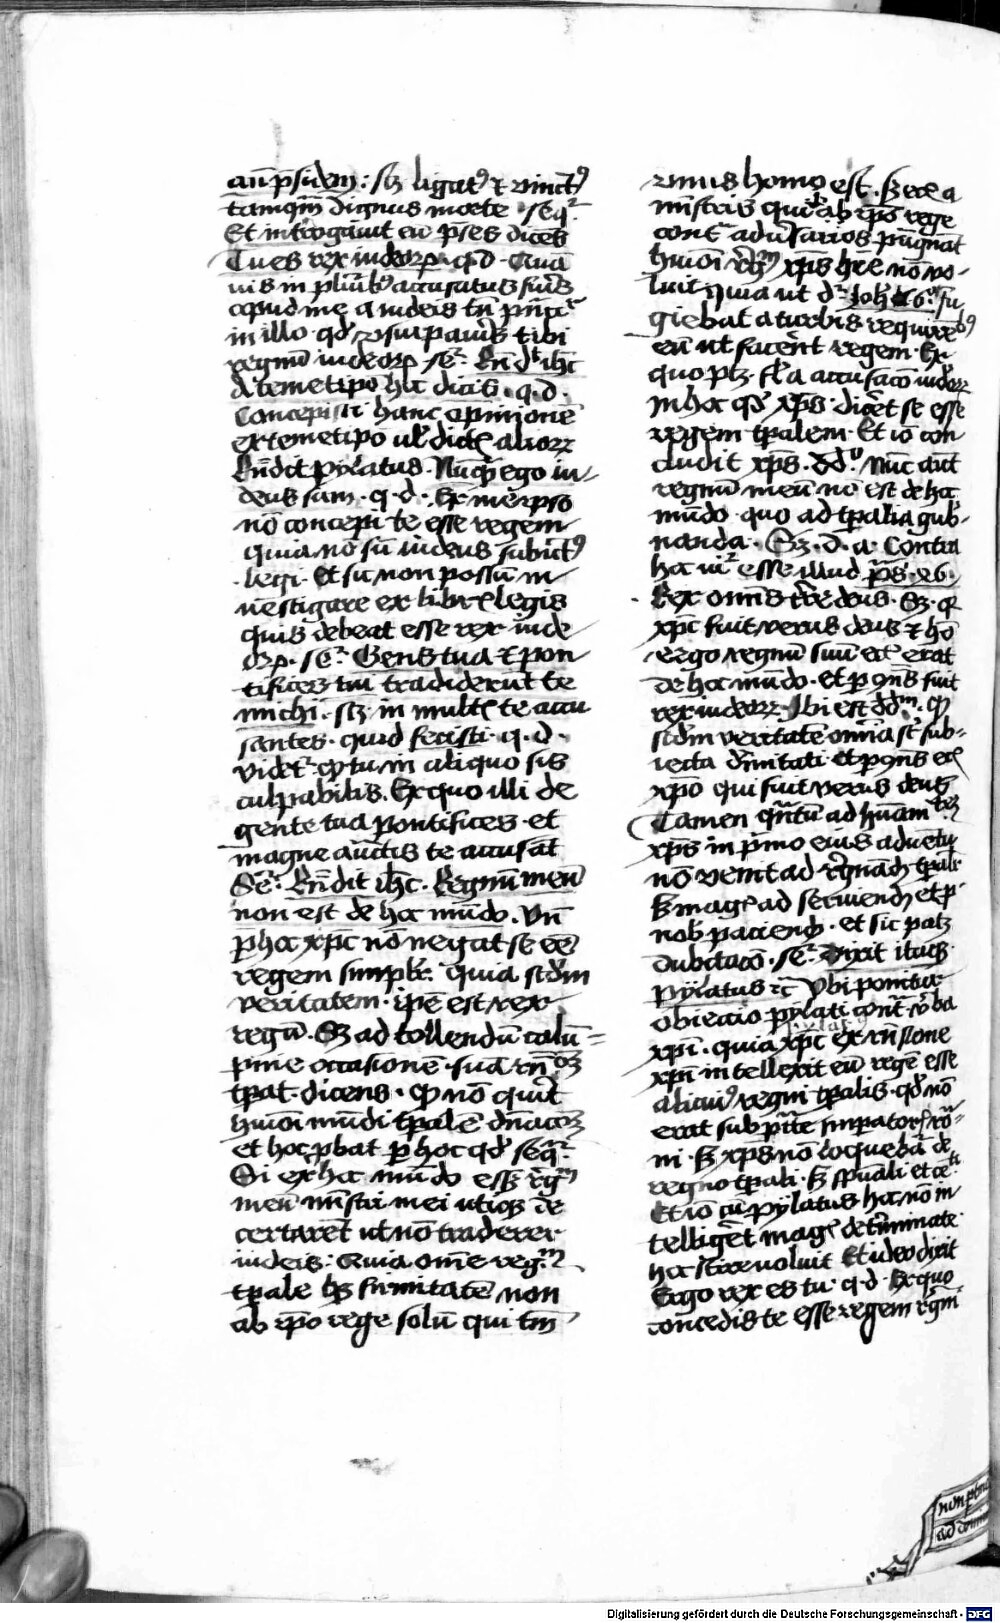 an̄ p̄sidem : sꝫ ligatꝰ ⁊ vinctꝰ
tamqm̄ dignus morte . seqr̄
Et int̾rogauit eū p̄ses dicēs
Tu es rex iudeorꝝ . q . d . Quā
uis in plurib̾ accusatus fueris
apud me a iudeis tn̄
in illo qd̾ usurpaueris tibi
regnū iudeorꝝ . seqr̄ . Rn̄dit ih̄c
A temetipo hͦ dicis . q . d .
Concepisti hanc opinionē
ex temetipo ul̾ dictis aliorꝝ
Rn̄dit pylatus . Nūqd̾ ego iu-
deus sum . q . d . Ex me ipso
nō concepi te esse regem
quia nō sū iudeus subiectꝰ
legi . Et sic non possū in
uestigare ex libris legis
quis debeat esse rex iude
orꝝ . seqr̄ . Gens tua ⁊ pon
tifices tui tradiderūt te
michi . sꝫ in multis te accu
santes . quid fecisti . q . d .
videt̾ ꝙ tu in aliquo sis
culpabilis . Ex quo illi de
gente tua pontifices et
magne auctis te accusāt
Seqr̄ . Rn̄dit ih̄c . Regnū meū
non est de hoc mūdo . Vn̄
ꝑ hoc xp̄c nō negat se eē
regem simplr̄ . quia scd̾m
veritatem . ip̄e est rex
regū . Sꝫ ad tollendū calū=
pnie occasionē . suā
tpat . dicens . ꝙ nō querit
huiꝰmōi mūdi tp̄alē dn̄acōꝫ
et hoc ꝓbat ꝑ hoc qd̾ seqr̄ .
Si ex hoc mūdo esset rgm̄
meū mīstri mei utiqꝫ de
certarēt ut nō traderer
iudeis : Quia om̄e regm̄
tp̄ale hꝫ firmitatē non
ab ip̄o rege solū qui tm̄
vnus homo est . sꝫ eciā a
mīstris qui ab ip̄o rege
cont̾ adu̾sarios pugnāt
huiꝰmōi rgm̄ xp̄s hr̄e nō vo-
luit Quia ut dr̄ Joh̄ 6º fu
giebat a turbis requirētibꝰ
eū ut facerēt regem . Ex
quo ptꝫ . fl̾a accusacō iudeorꝝ
in hoc qd̾ xp̄s diceret se esse
regem tp̄alem . Et iō con
cludit xp̄s . dd̾º Nūc aūt
regnū meū nō est de hoc
mūdo quo ad tp̄alia gub̾-
nanda . Sꝫ . d . a . Contra
hoc ur̄ esse illud p̄s . 46 .
Rex om̄is tr̄e deus . Sꝫ . ꝙ
xp̄c fuit verus deus ⁊ hō
ergo regnū suū eciā erat
de hoc mūdo . et ꝑ ꝯn̄s fuit
rex iudeorꝝ . Ibi est dd̾m . ꝙ
scd̾m veritatē om̄ia st̄ sub-
iecta diuinitati . et ꝑ ꝯn̄s eciā
xp̄o qui fuit verus deus
Tamen qn̄tū ad hūanitateꝫ
xp̄s in p̾mo eius aduētu
nō venit ad regnādū tp̄alr̄
sꝫ magis ad seruiendū et ꝓ
nob̾ paciendū . et sic patꝫ
dubitacō . seqr̄ . Dixit itaqꝫ
pylatus ⁊c̄ Vbi ponitur
obiectio pylati cont̾ v̾ba
xp̄i . quia xp̄c ex rn̄sione
xp̄i intellexit eū regē esse
alicuiꝰ regni tp̄alis . qd̾ nō
erat sub p̄tāte imperatoris ro-
ni . sꝫ xp̄s nō loquebat̾ de
regno tp̄ali . sꝫ spūali et
Et iō cū pylatus hoc nō in
telligeret magis det̾minate
hoc scire voluit Et ideo dixit
Ergo rex es tu . q . d . Ex quo
concedis te esse regem rgm̄